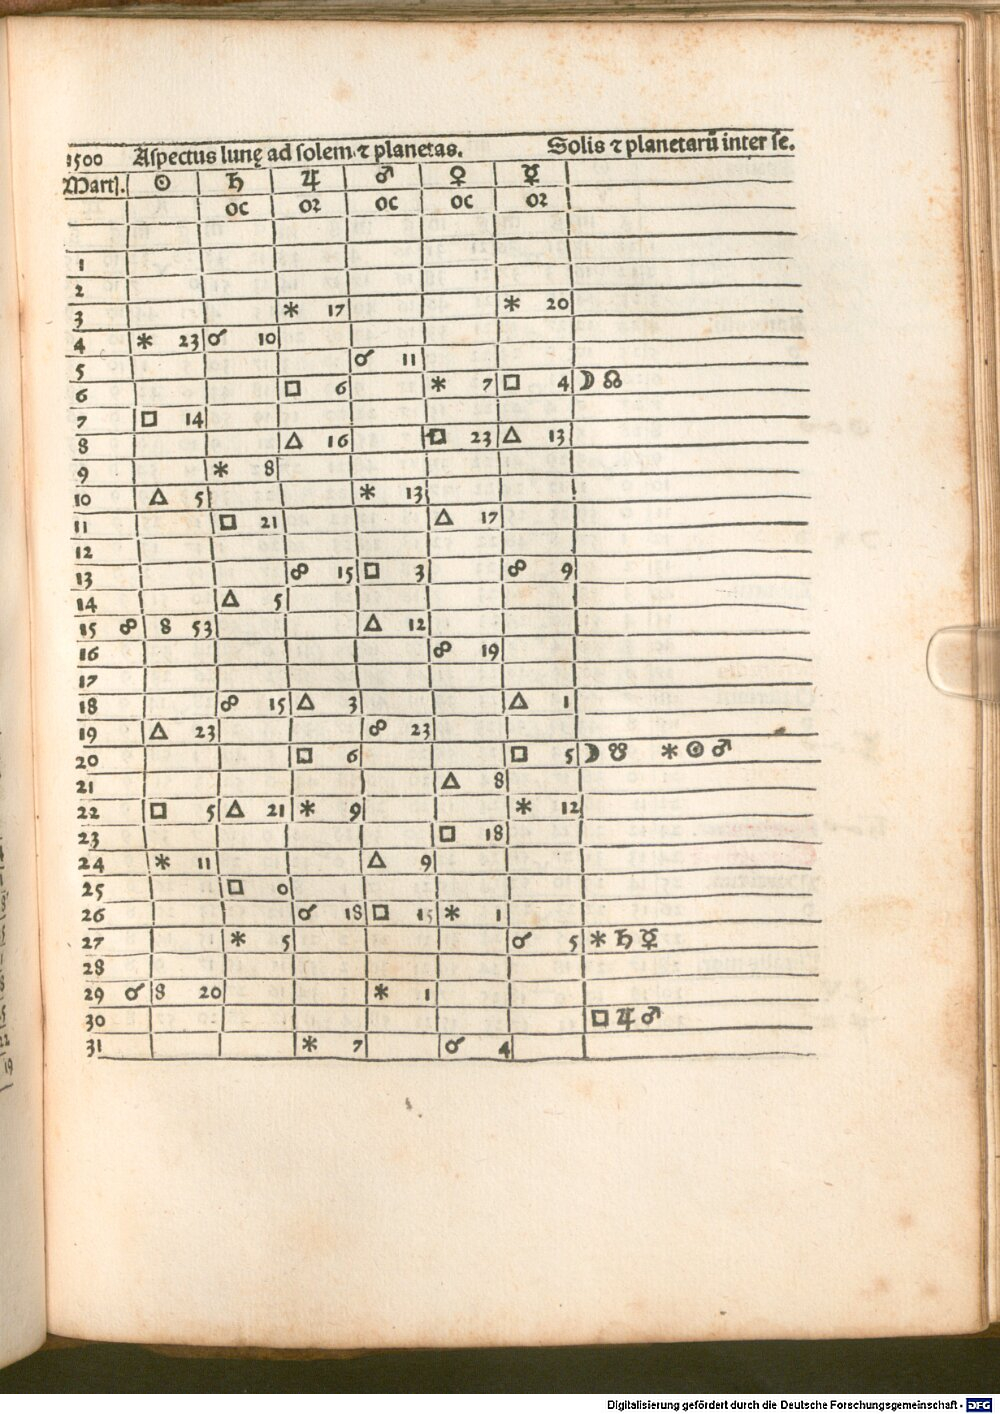 1500 Aspectus lunę ad solem ⁊ planetas. Solis ⁊ planetarū inter se.
Martȷ. ☉ ♄ ♃ ♂ ♀ ☿
oc oꝛ oc oc oꝛ
1
2
3 ⚹ 17 ⚹ 20
4 ⚹ 23 ☌ 10
5 ☌ 11
6 □ 6 ⚹ 7 □ 4 ☽ ☊
7 □ 14
8 △ 16 □ 23 △ 13
9 ⚹ 8
10 △ 5 ⚹ 13
11 □ 21 △ 17
12
13 ☍ 15 □ 3 ☍ 9
14 △ 5
15 ☍ 8 53 △ 12
16 ☍ 19
17
18 ☍ 15 △ 3 △ 1
19 △ 23 ☍ 23
20 □ 6 □ 5 ☽ ☋ ⚹ ☉ ♂
21 △ 8
22 □ 5 △ 21 ⚹ 9 ⚹ 12
23 □ 18
24 ⚹ 11 △ 9
25 □ 0
26 ☌ 18 □ 15 ⚹ 1
27 ⚹ 5 ☌ 5 ⚹ ♄ ☿
28
29 ☌ 8 20 ⚹ 1
30 □ ♃ ♂
31 ⚹ 7 ☌ 4
Digitalisierung gefördert durch die Deutsche Forschungsgemeinschaft - DFG